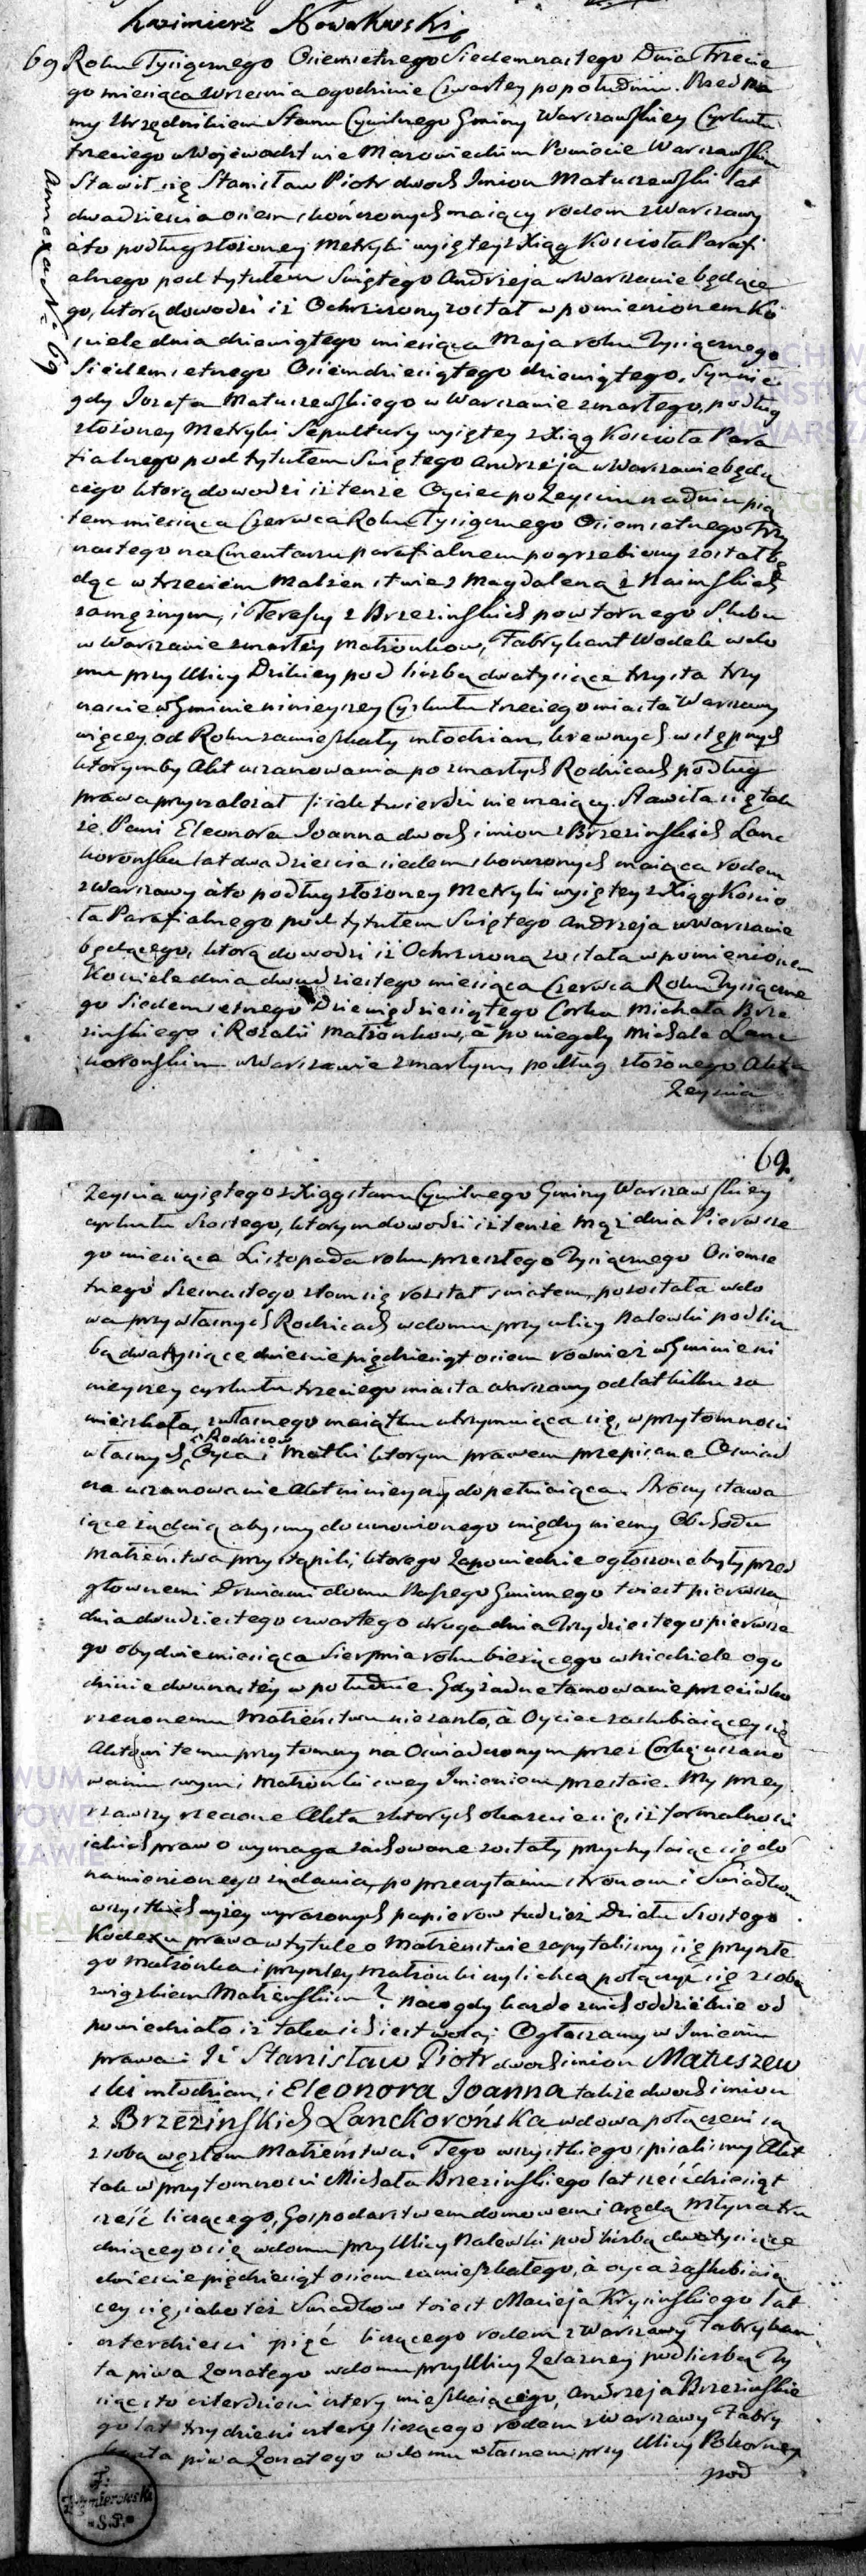 Kazimierz Nowakowski
69 Roku Tysiącznego Osiemsetnego Siedemnastego Dnia Trzecie
go miesiąca Wrzesnia o godzinie Czwartey po południu. Przed na
my Urzędnikiem Stanu Cywilnego Gminy Warszawskiey Cyrkułu
trzeciego w Woiewodztwie Mazowieckim Powiecie Warszawskim
Stawił się Stanisław Piotr dwoch Imion Matuszewski lat
dwadziescia osiem skończonych maiący rodem z Warszawy
Annexa № 69
à to podług złożoney Metryki wyiętey z Xiąg Koscioła Parafi
alnego pod tytułem Swiętego Andrzeja w Warszawie będące
go, którą dowodzi iż Ochrzczony został w pomienionem Ko
sciele dnia dziewiątego miesiąca Maja roku Tysiącznego
Siedemsetnego Osiemdziesiątego dziewiątego, Syn nie
gdy Jozefa Matuszewskiego w Warszawie zmarłego, podług
złożoney Metryki Sepultury wyiętey z Xiąg Koscioła Para
fialnego pod tytułem Swiętego Andrzeja w Warszawie będą
cego którą dowodzi iż tenże Oyciec po Zeysciu na dniu pią
tem miesiąca Czerwca Roku Tysiącznego Osiemsetnego Trzy
nastego na Cmentarzu parafialnem pogrzebiony został bę
dąc w trzeciem Małżenstwie z Magdaleną z
zamężnym, i Teresy z Brzezinskich powtornego Slubu
w Warszawie zmarłey Małżonkow, Fabrykant Wodek w do
mu przy Ulicy Dzikiey pod liczbą dwa tysiące trzysta trzy
nascie w Gminie ninieyszey Cyrkułu trzeciego miasta Warszawy
więcey od Roku zamieszkały młodzian, krewnych wstępnych
ktorymby Akt uszanowania po zmarłych Rodzicach podług
prawa przynależał iak twierdzi nie maiący. Stawiła się tak
że Pani Eleonora Joanna dwoch imion z Brzezinskich Lanc
korońska lat dwadziescia siedem skonczonych maiąca rodem
z Warszawy à to podług złożoney Metryki wyiętey z Xiąg Koscio
ła Parafialnego pod tytułem Swiętego Andrzeja w Warszawie
będącego, którą dowodzi iż Ochrzczoną została w pomienionem
Kosciele dnia dwudziestego miesiąca Czerwca Roku Tysiączne
go Siedemsetnego Dziewiędziesiątego Corka Michała Brze
zinskiego i Rozalii Małżonkow, à po niegdy Michale Lanc
koronskim w Warszawie zmarłym, podług złożonego Aktu
Zeyscia
69.
Zeyscia wyiętego z Xiąg stanu Cywilnego Gminy Warszawskiey
cyrkułu Szostego, ktorym dowodzi iż tenże mąż dnia Pierwsze
go miesiąca Listopada roku przeszłego Tysiącznego Osiemse
tnego Szesnastego z tem się rozstał swiatem, pozostała wdo
wa przy własnych Rodzicach w domu przy ulicy Nalewki pod licz
bą dwa tysiące dwiescie pięćdziesiąt osiem rownież w Gminie ni
nieyszey cyrkułu trzeciego miasta Warszawy od lat kilku za
mieszkała, z własnego maiątku utrzymuiąca się, w przytomnosci
Rodzicow
własnych Oyca i Matki ktorym prawem przepisane Oswiad
na uszanowanie Akt ninieyszy dopełniaiąca. Strony stawa
iące żądaią abysmy do umowionego między niemy Obchodu
Małżeństwa przystąpili, ktorego Zapowiedzie ogłoszone były przed
głownemi Drzwiami domu Naszego Gminnego to iest pierwsza
dnia dwudziestego czwartego druga dnia Trzydziestego pierwsze
go obydwie miesiąca Sierpnia roku bieżącego w Niedziele o go
dzinie dwunastéy w południe. Gdy żadne tamowanie przeciwko
rzeczonemu Małżeństwu nie zaszło, à Oyciec zaslubiaiącey się
Aktowi temu przytomny na Oswiadczonym przez Corkę uszano
waniu swym i Małżonki swey Imieniem przestaie. My przey
rzawszy rzeczone Akta z ktorych okazuie się, iż formalnosci
iakich prawo wymaga zachowane zostały przychylaiąc się do
namienionego żądania, po przeczytaniu stronom i Swiadkom
wszystkich wyżey wyrażonych papierow tudzież Działu Szostego
Kodexu prawa w tytule o Małżenstwie zapytalismy się przyszłe
go Małżonka i przyszłey małżonki czyli chcą połączyć się z sobą
związkiem Małżenskim? Na co gdy każde z nich oddzielnie od
powiedziało iż taka ich iest wola; Ogłaszamy w Imieniu
prawa: Iż Stanisław Piotr dwoch imion Matuszew
ski młodzian, i Eleonora Joanna także dwoch imion
z Brzezińskich Lanckorońska wdowa połączeni są
z sobą węzłem Małżeństwa. Tego wszystkiego spisalismy Akt
tak w przytomnosci Michała Brzezinskiego lat szesćdziesiąt
sześć liczącego, Gospodarstwem domowem i arędą Młyna tru
dniącego się w domu przy Ulicy Nalewki pod liczbą dwa tysiące
dwiescie pięćdziesiąt osiem zamieszkałego, à oyca zaslubiaią
cey się, iako też Swiadkow to iest Macieja Krysinskiego lat
czterdziesci pięć liczącego rodem z Warszawy Fabrykan
ta piwa Żonatego w domu przy Ulicy Żelazney pod liczbą Ty
siąc sto czterdziesci cztery mieszkaiącego, Andrzeja Brzezinskie
go lat trzydziesci cztery liczącego rodem z Warszawy Fabry
kanta piwa Żonatego w domu własnem przy Ulicy Pokorney
pod